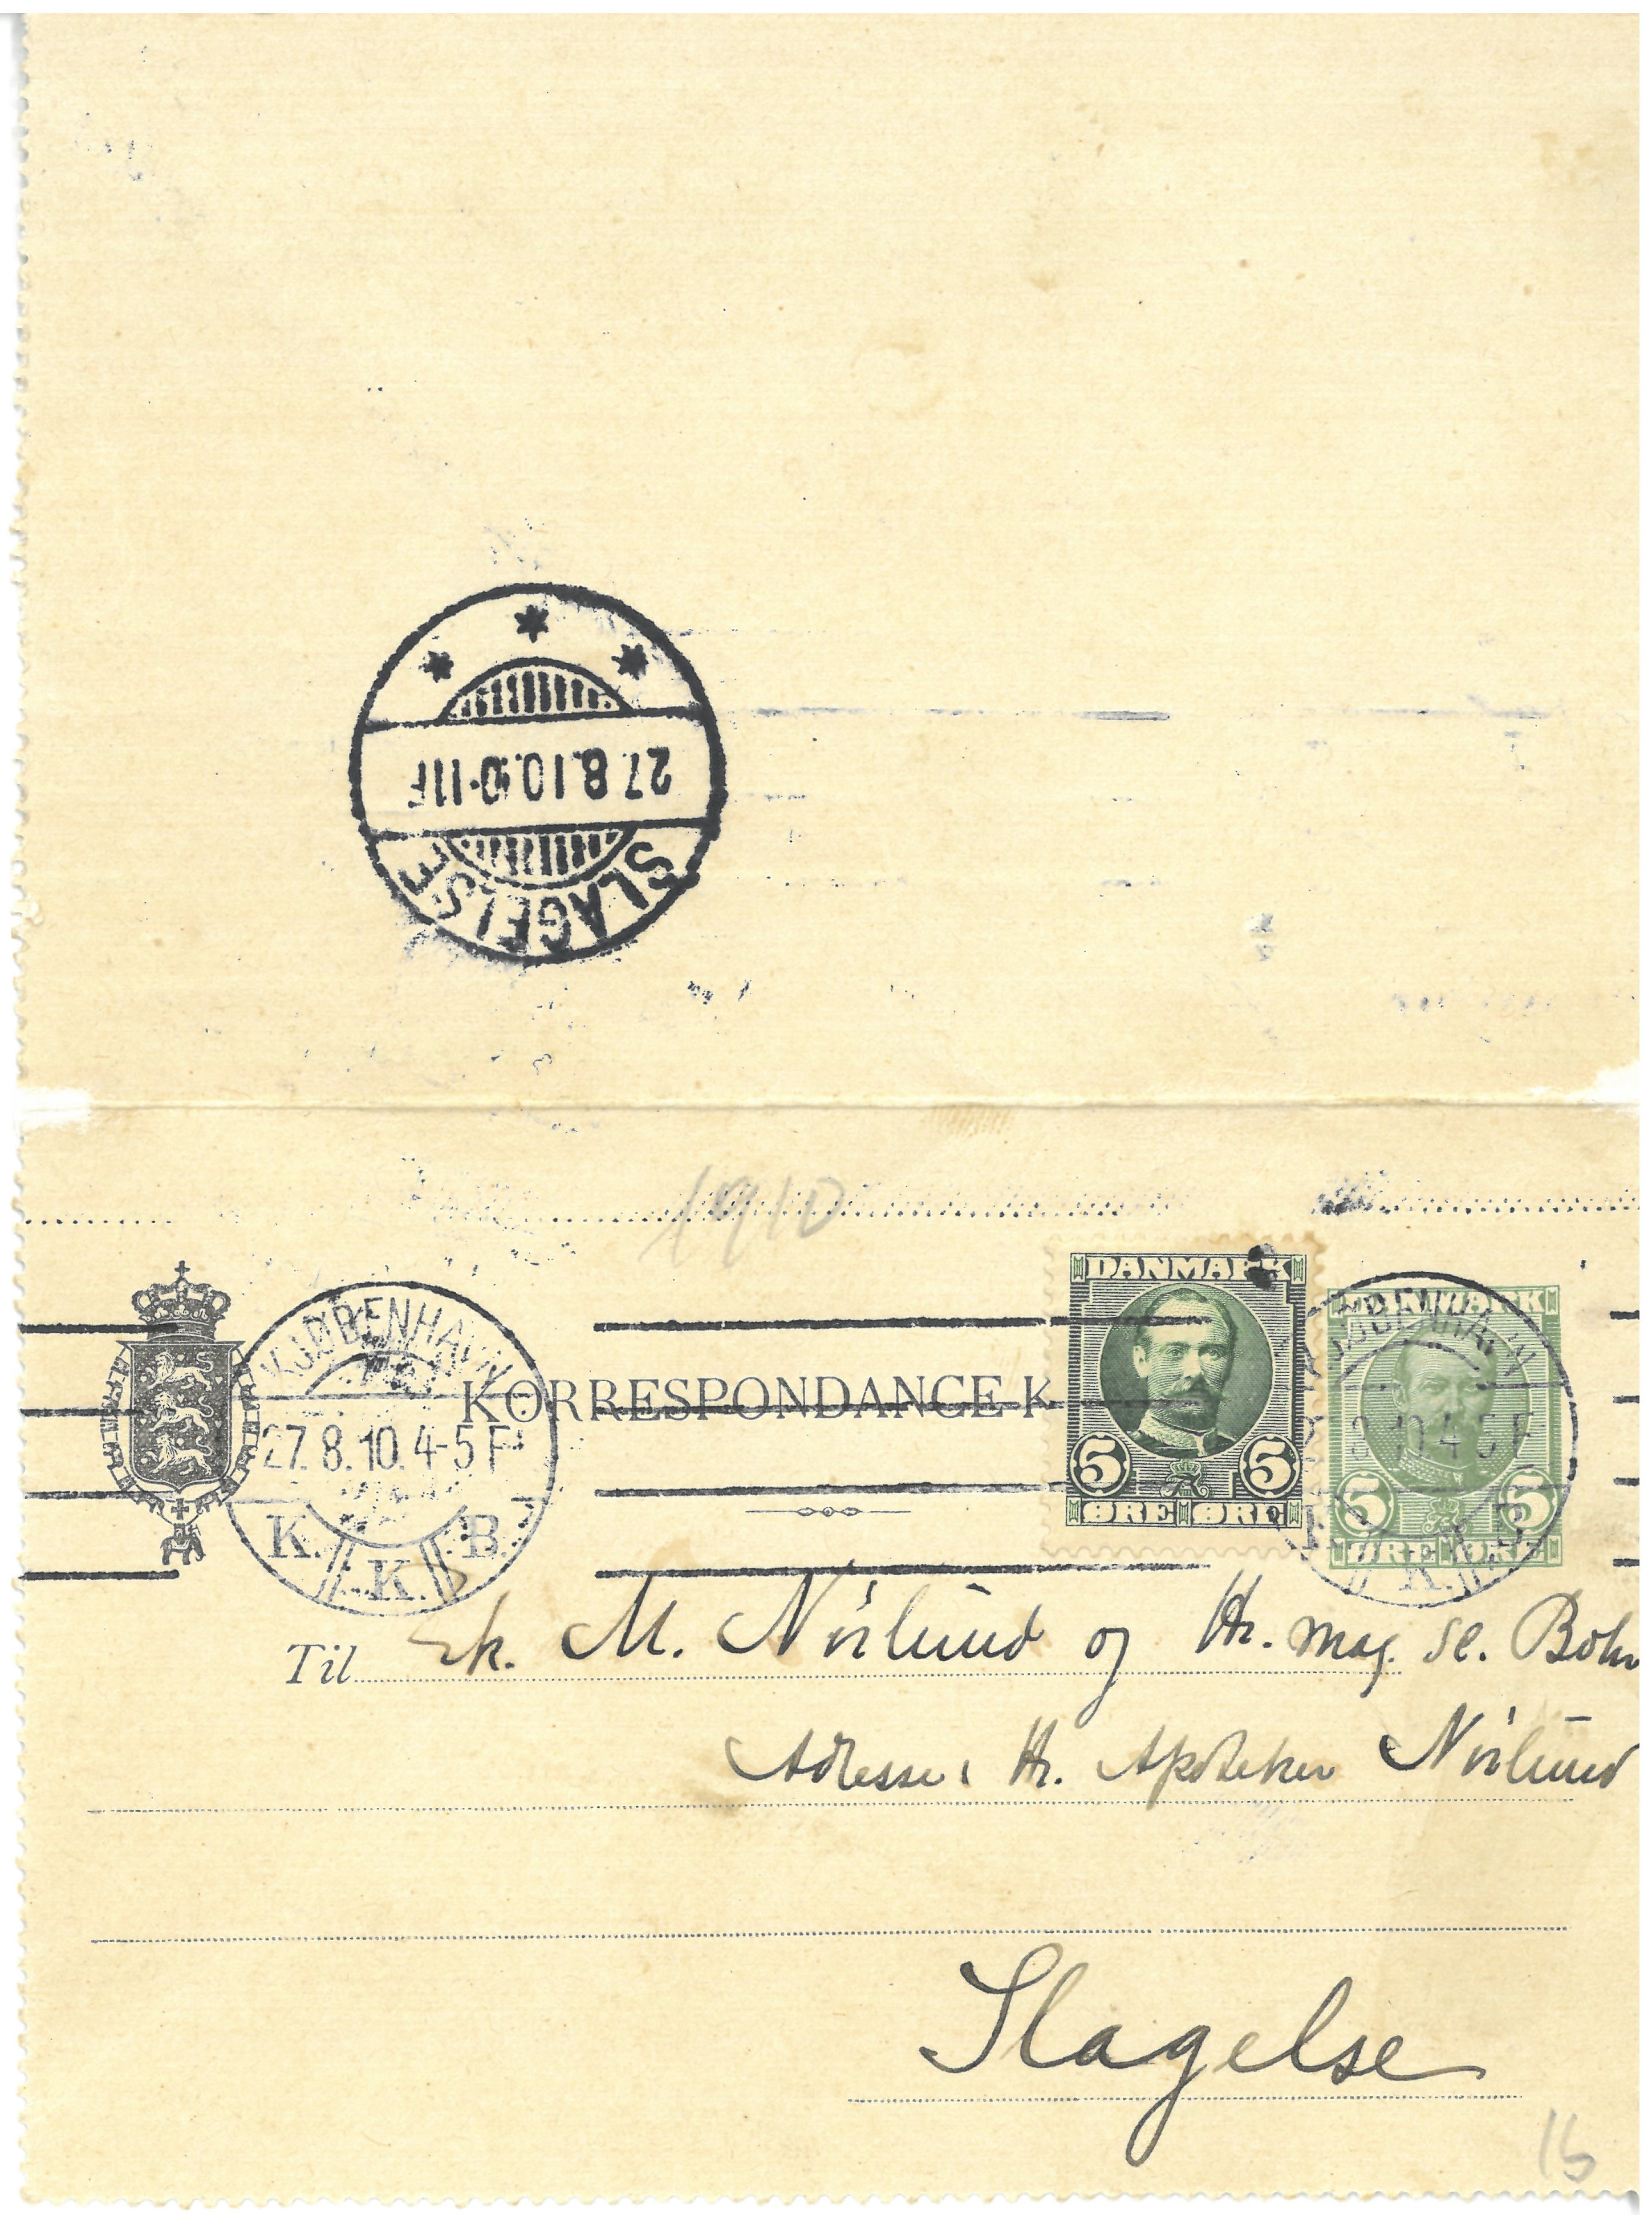 SLAGELSE
27.8.10.10-11F
1910
KJØBENHAVN
27.8.10.4-5F
K. K. B.
KORRESPONDANCE-K
DANMARK
5 5
ØRE ØRE
DANMARK
5 5
ØRE ØRE
KJØBENHAVN
4-5F
K.
Til Frk. M. Nörlund og Hr. mag. sc. Bohr
Adresse: Hr. Apoteker Nörlund
Slagelse
16